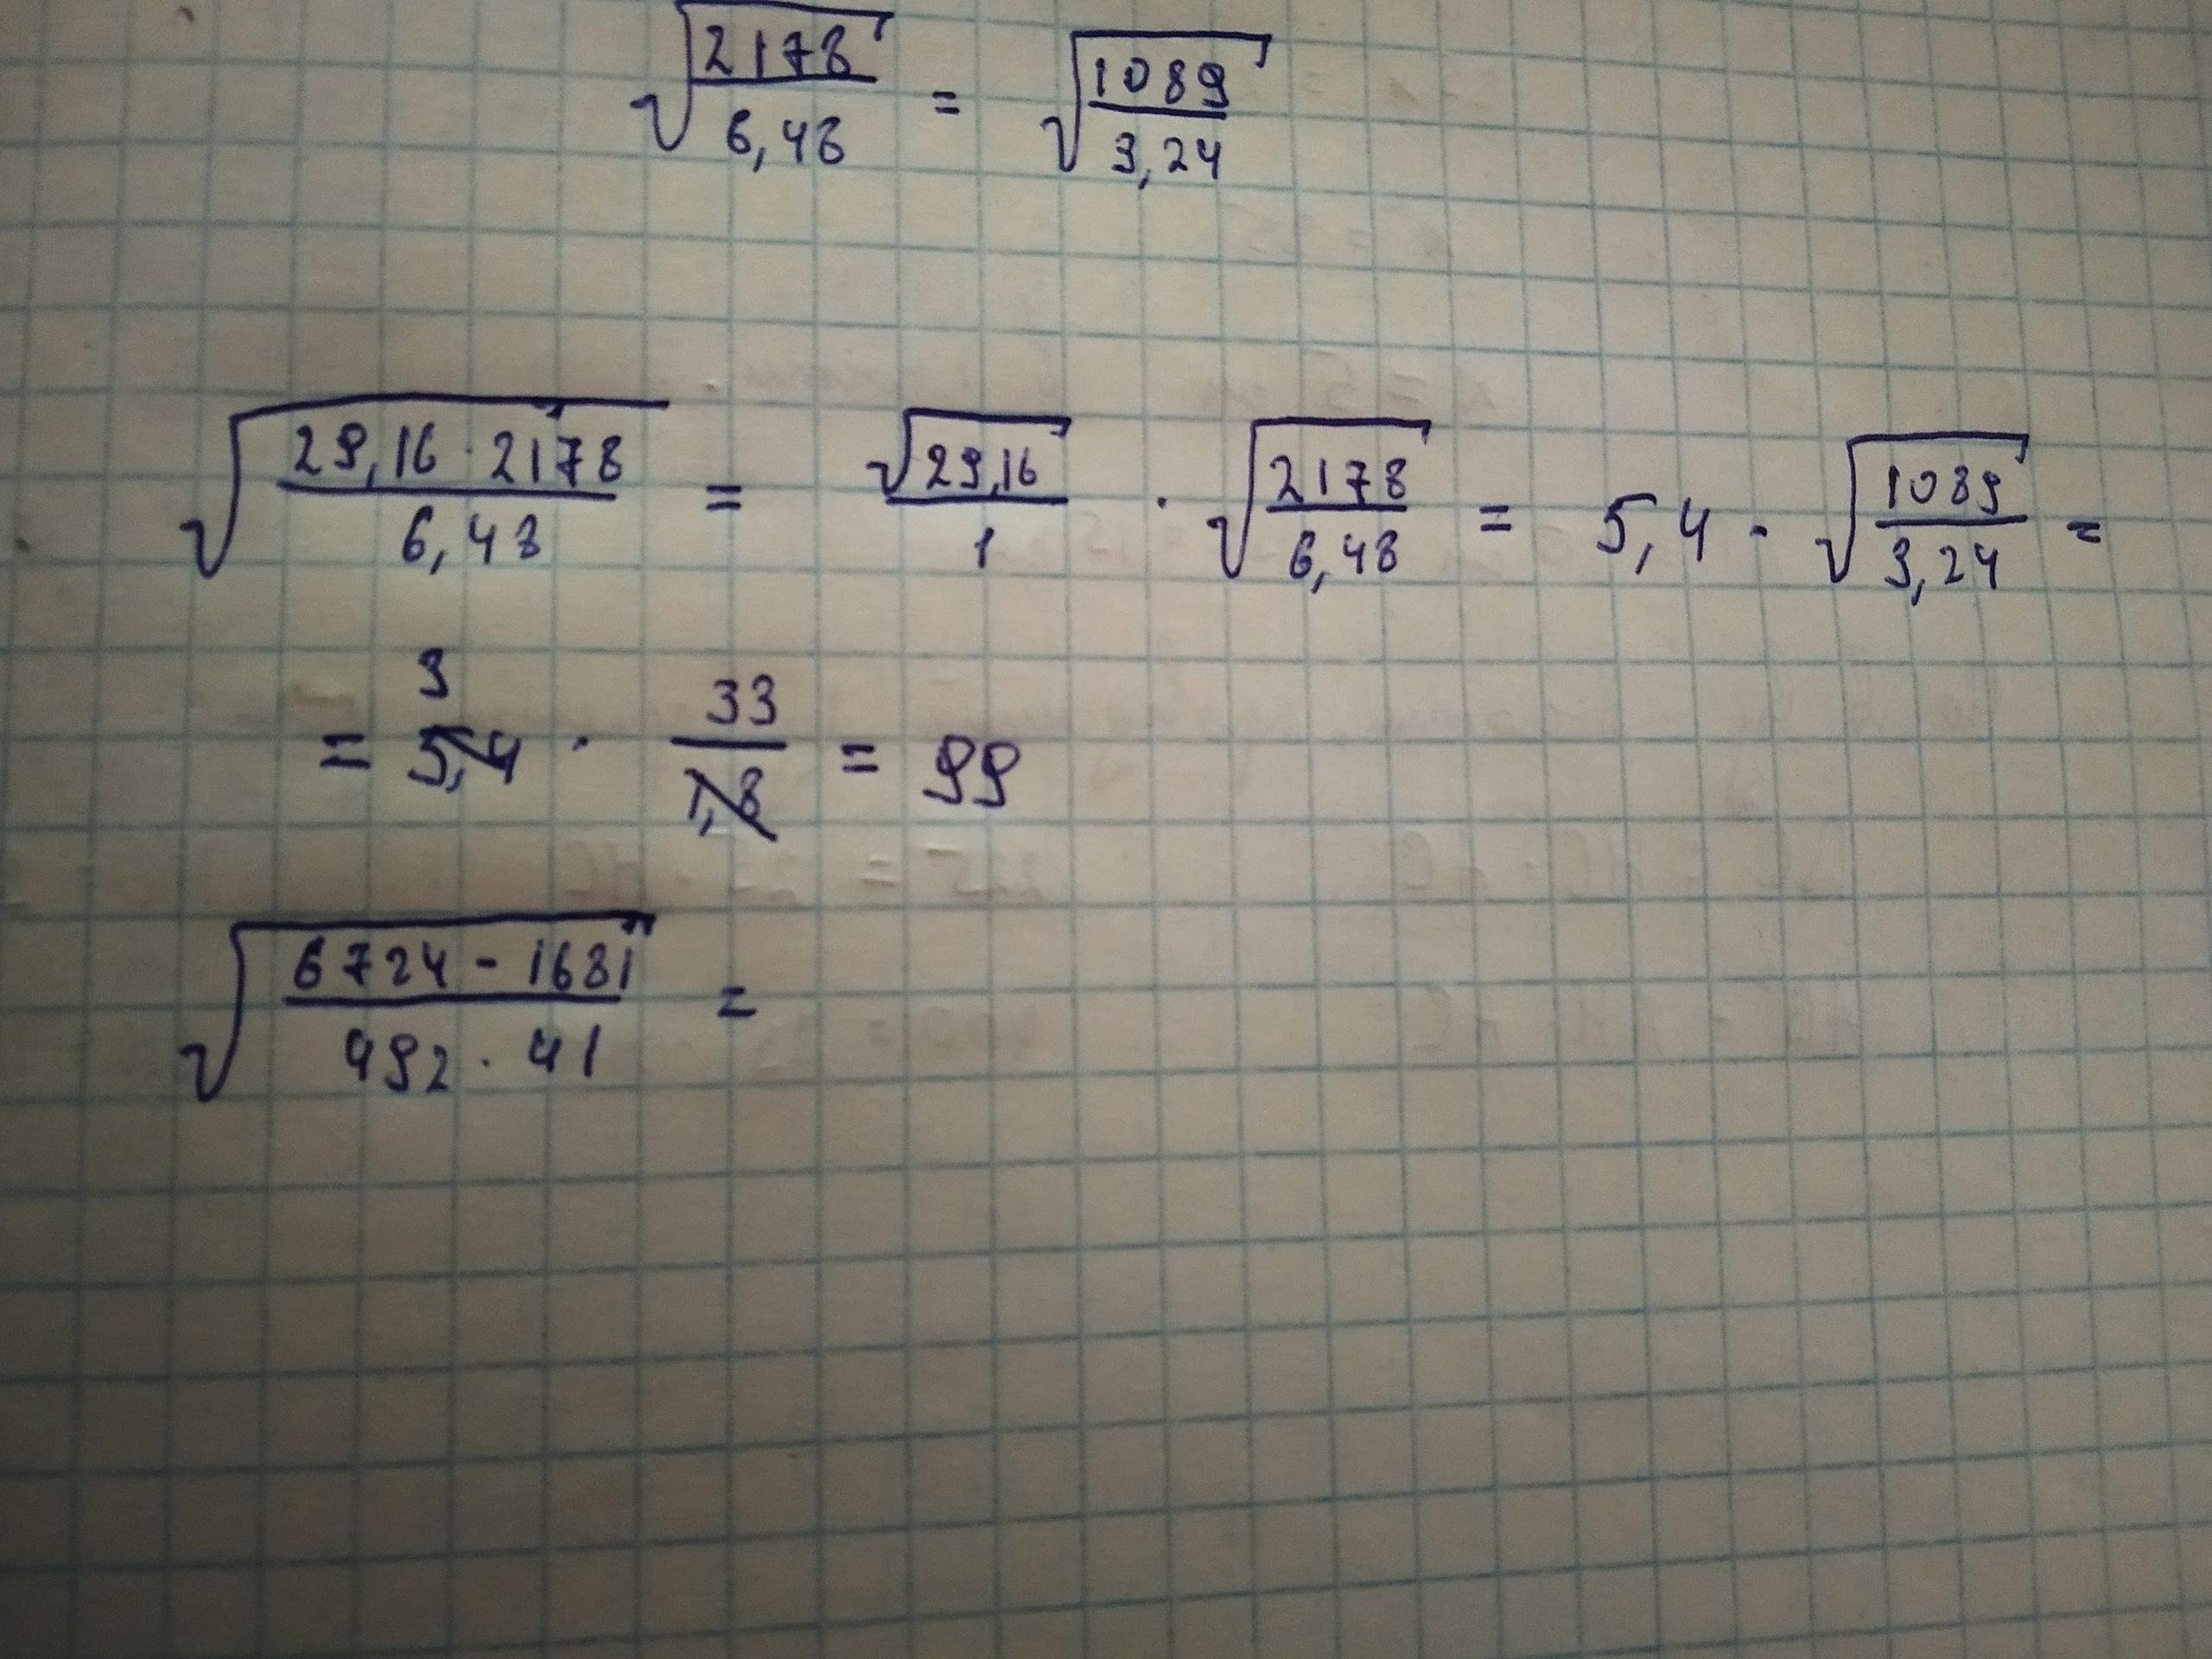 √(2178/6,48) = √(1089/3,24)
√(29,16 · 2178/6,48) = √29,16/1 · √(2178/6,48) = 5,4 · √(1089/3,24) =
= 5,4 3 · 33/1,8 = 99
√(6724 - 1681/492 · 41) =